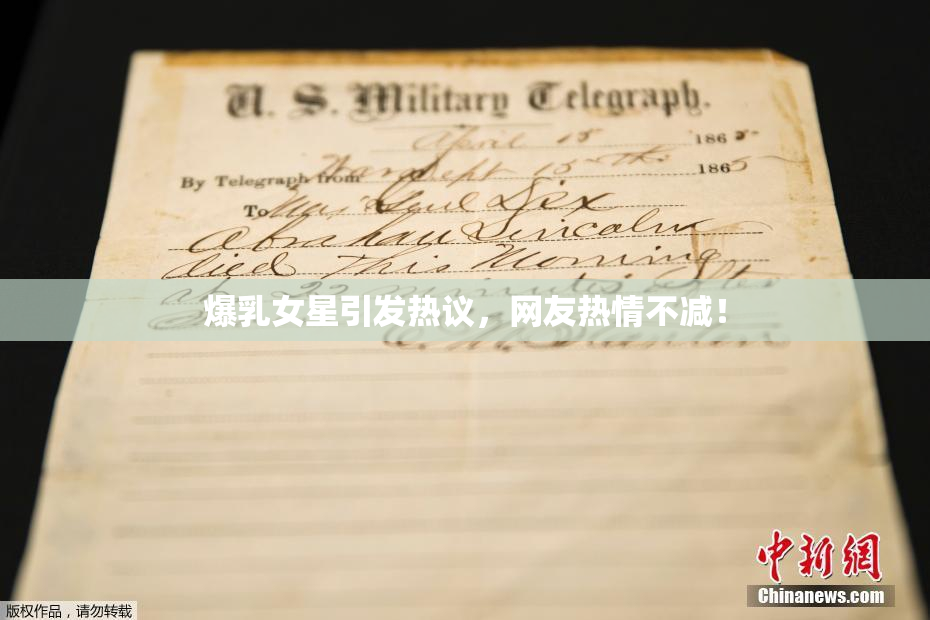 U. S. Military Telegraph.
April 15 1865
By Telegraph from War Dept 15th 1865
To Maj Genl Dix
Abraham Lincoln
died This Morning
at 22 minutes after
爆乳女星引发热议，网友热情不减！
Stanton
中新网
Chinanews.com
版权作品，请勿转载